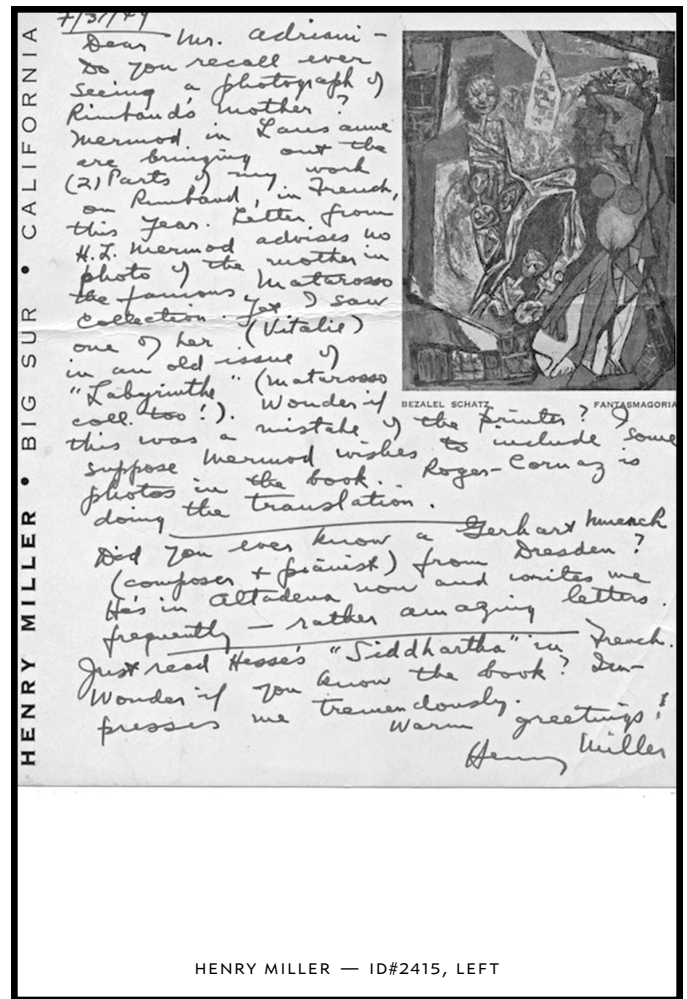 7/31/49
Dear Mr. Adriani –
Do you recall ever
seeing a photograph of
Rimbaud's mother?
Mermod in Lausanne
are bringing out the
(2) Parts of my work
on Rimbaud, in French,
this year. Letter from
H.L. Mermod advises no
photo of the mother in
the famous Matarosso
collection. Yet I saw
one of her (Vitalie)
in an old issue of
"Labyrinthe" (Matarosso
coll. too!). Wonder if
this was a mistake of the printer? I
suppose Mermod wishes to include some
photos in the book. Roger-Cornaz is
doing the translation.
Did you ever know a Gerhart Muench
(composer + pianist) from Dresden?
He's in Altadena now and writes me
frequently — rather amazing letters.
Just read Hesse's "Siddhartha" in French.
Wonder if you know the book? Im-
presses me tremendously.
Warm greetings!
Henry Miller
BEZALEL SCHATZ
FANTASMAGORIA
HENRY MILLER • BIG SUR • CALIFORNIA
HENRY MILLER — ID#2415, LEFT